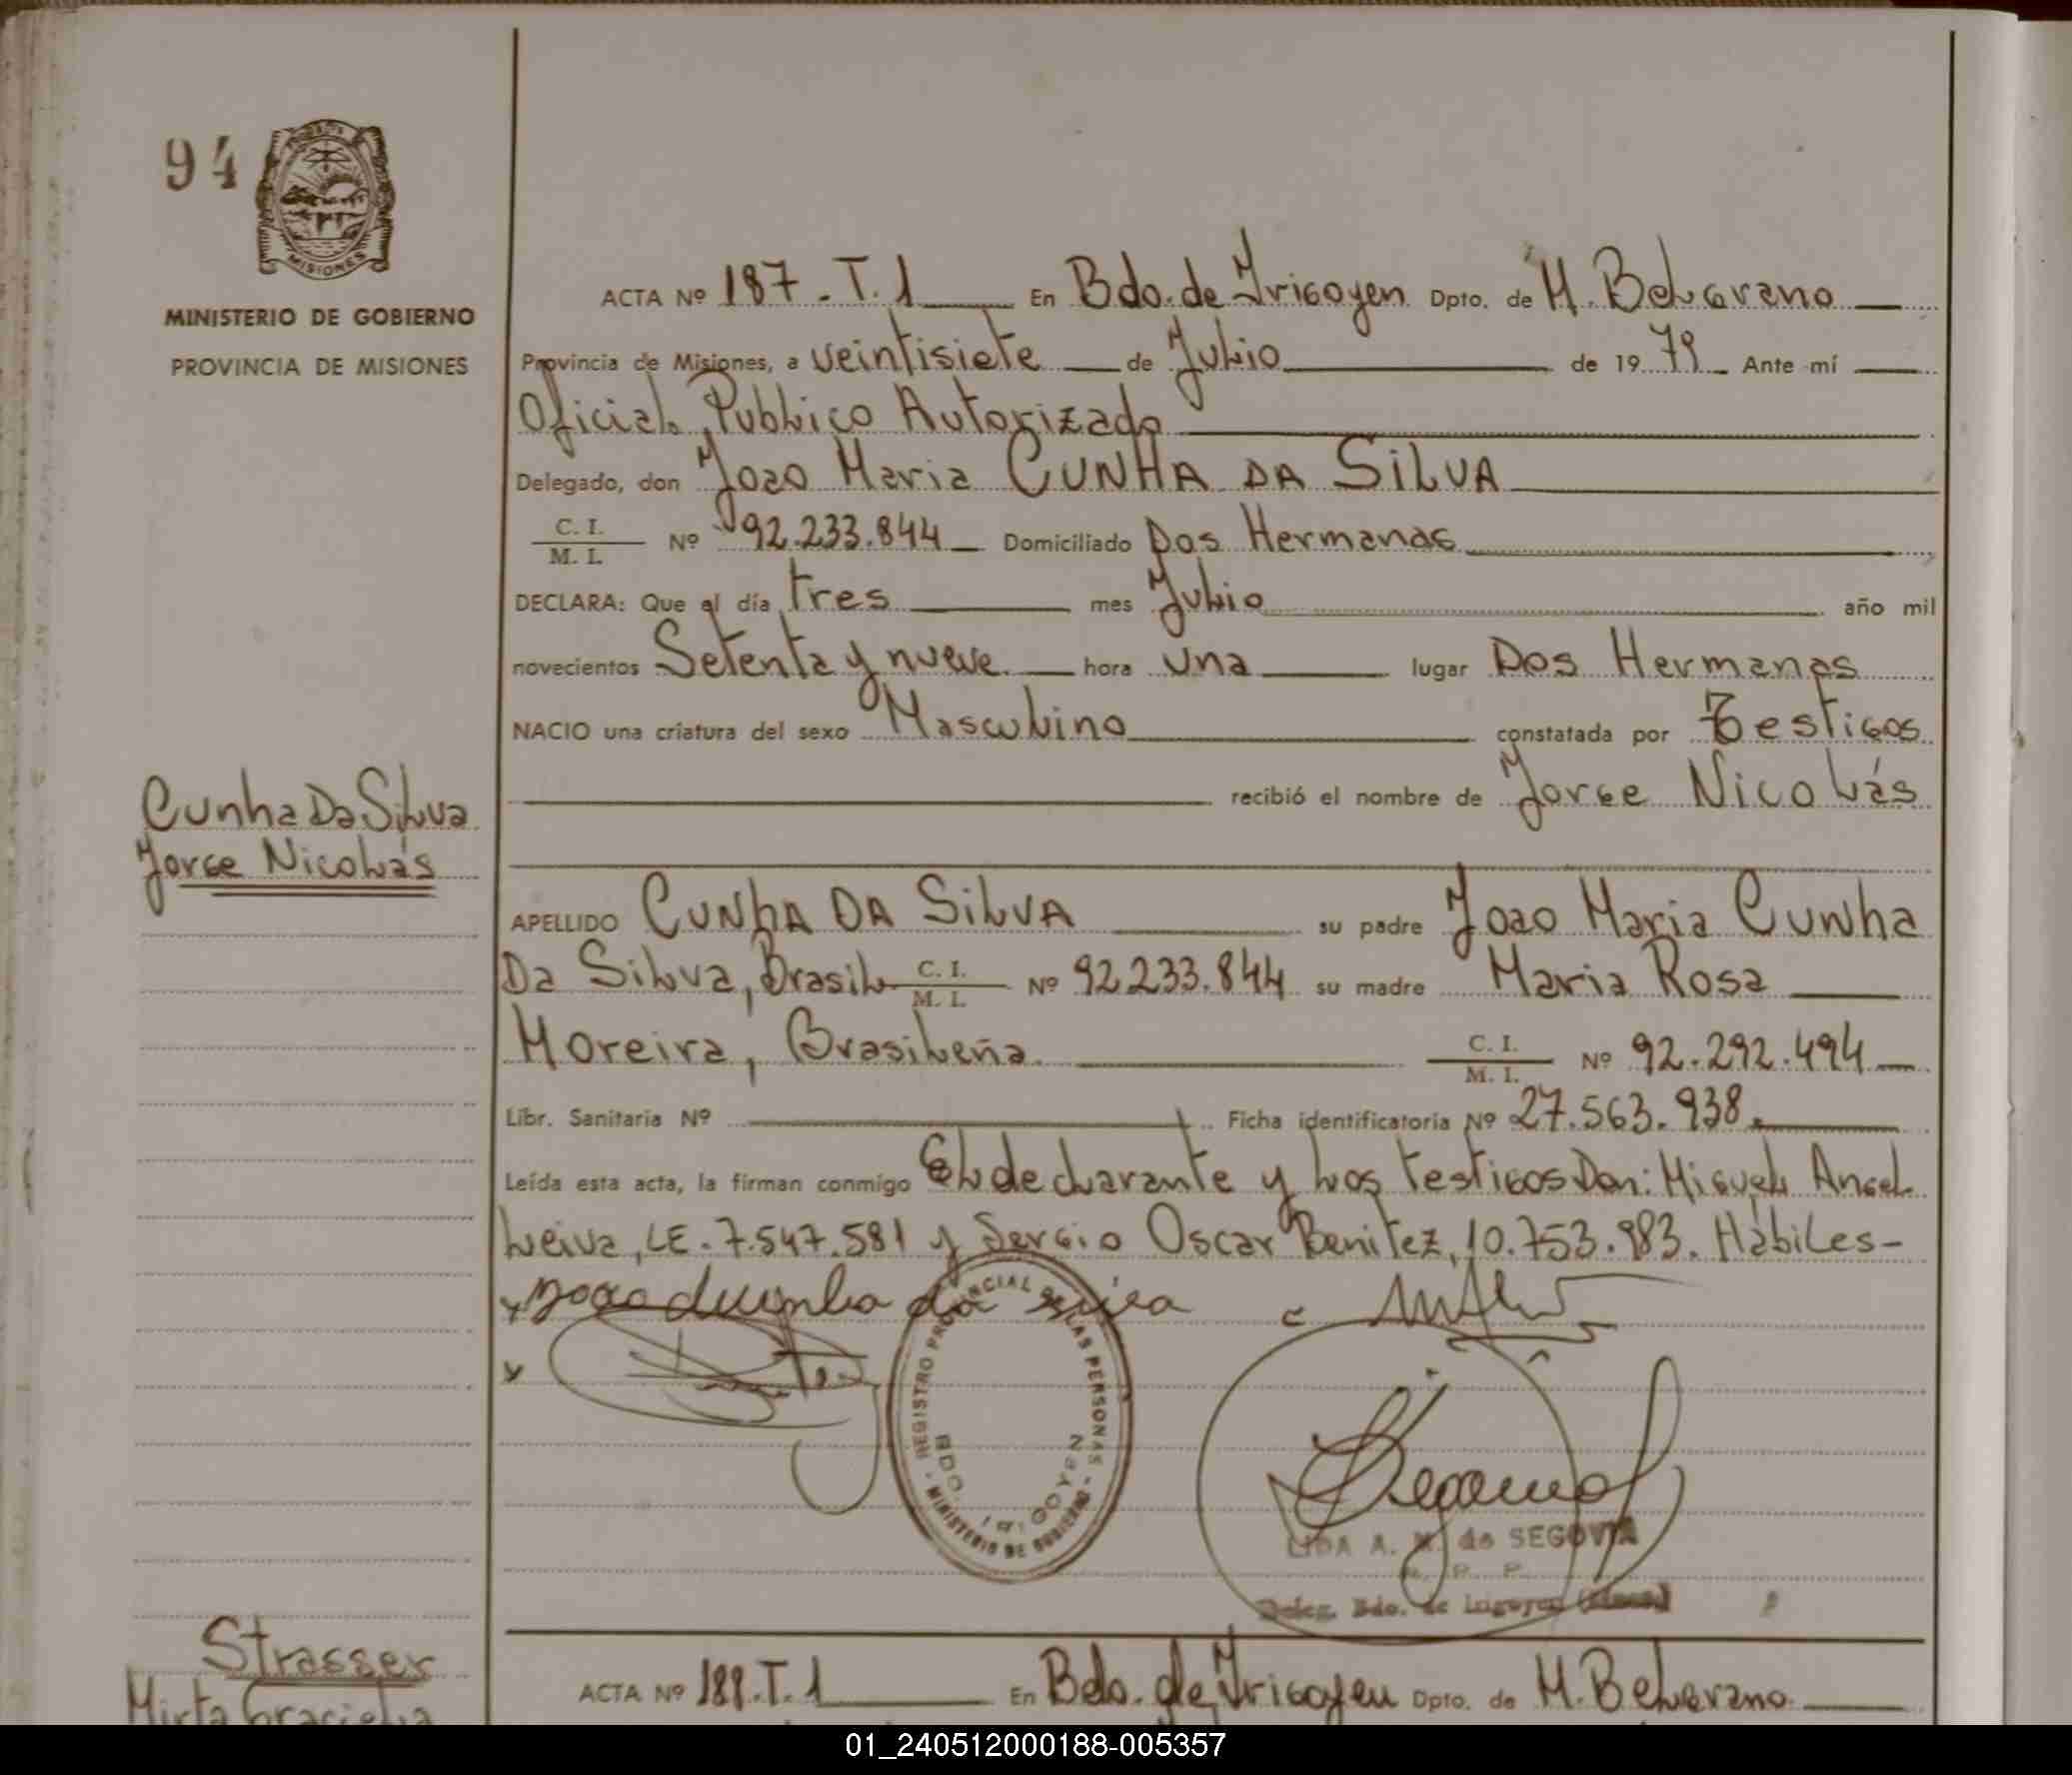 94
MISIONES
MINISTERIO DE GOBIERNO
PROVINCIA DE MISIONES
ACTA Nº 187.T.1 En Bdo. de Irigoyen Dpto. de M. Belgrano
Provincia de Misiones, a veintisiete de Julio de 1979 Ante mí
Oficial Publico Autorizado
Delegado, don Joao Maria CUNHA DA SILVA
C. I. / M. I. Nº 92.233.844 Domiciliado Dos Hermanas
DECLARA: Que el día tres mes Julio año mil
novecientos Setenta y nueve hora una lugar Dos Hermanas
NACIO una criatura del sexo Masculino constatada por Testigos
recibió el nombre de Jorge Nicolás
Cunha Da Silva
Jorge Nicolás
APELLIDO CUNhA DA SiLVA su padre Joao Maria Cunha
Da Silva, Brasil C. I. / M. I. Nº 92233.844 su madre Maria Rosa
Moreira, Brasileña C. I. / M. I. Nº 92.292.494
Libr. Sanitaria Nº Ficha identificatoria Nº 27.563.938.
Leída esta acta, la firman conmigo El declarante y los testigos Don: Miguel Angel
Leiva, LE. 7.547.581 y Sergio Oscar Benitez, 10.753.983. Hábiles-
REGISTRO PROVINCIAL DE LAS PERSONAS
BDO. IRIGOYEN
- MINISTERIO DE GOBIERNO -
LIDA A. M. de SEGOVIA
Deleg. Bdo. de Irigoyen
Strasser
Mirta Graciela
ACTA Nº 188.T.1 En Bdo. de Irigoyen Dpto. de M. Belgrano
01_240512000188-005357